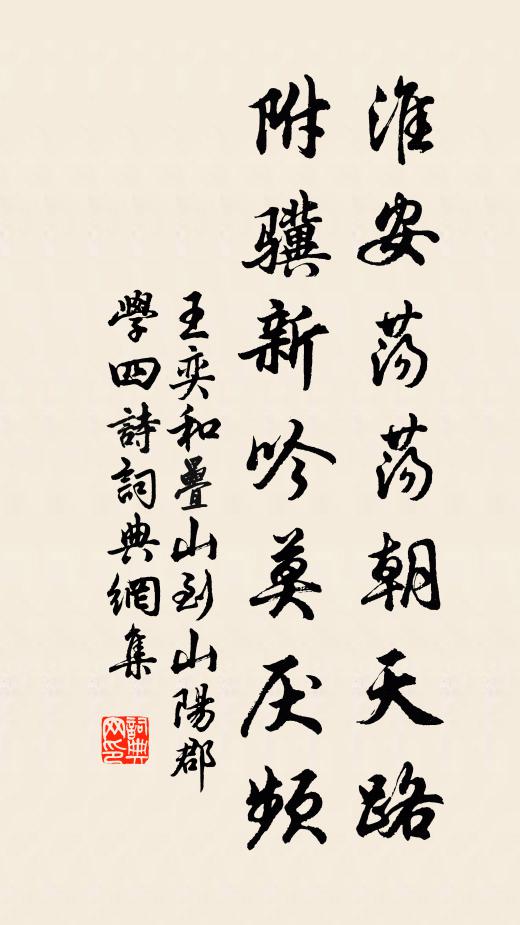 淮安荡荡朝天路
附骥新吟莫厌频
王奕和疊山到山陽郡
學四詩詞典網集
詞典
网印